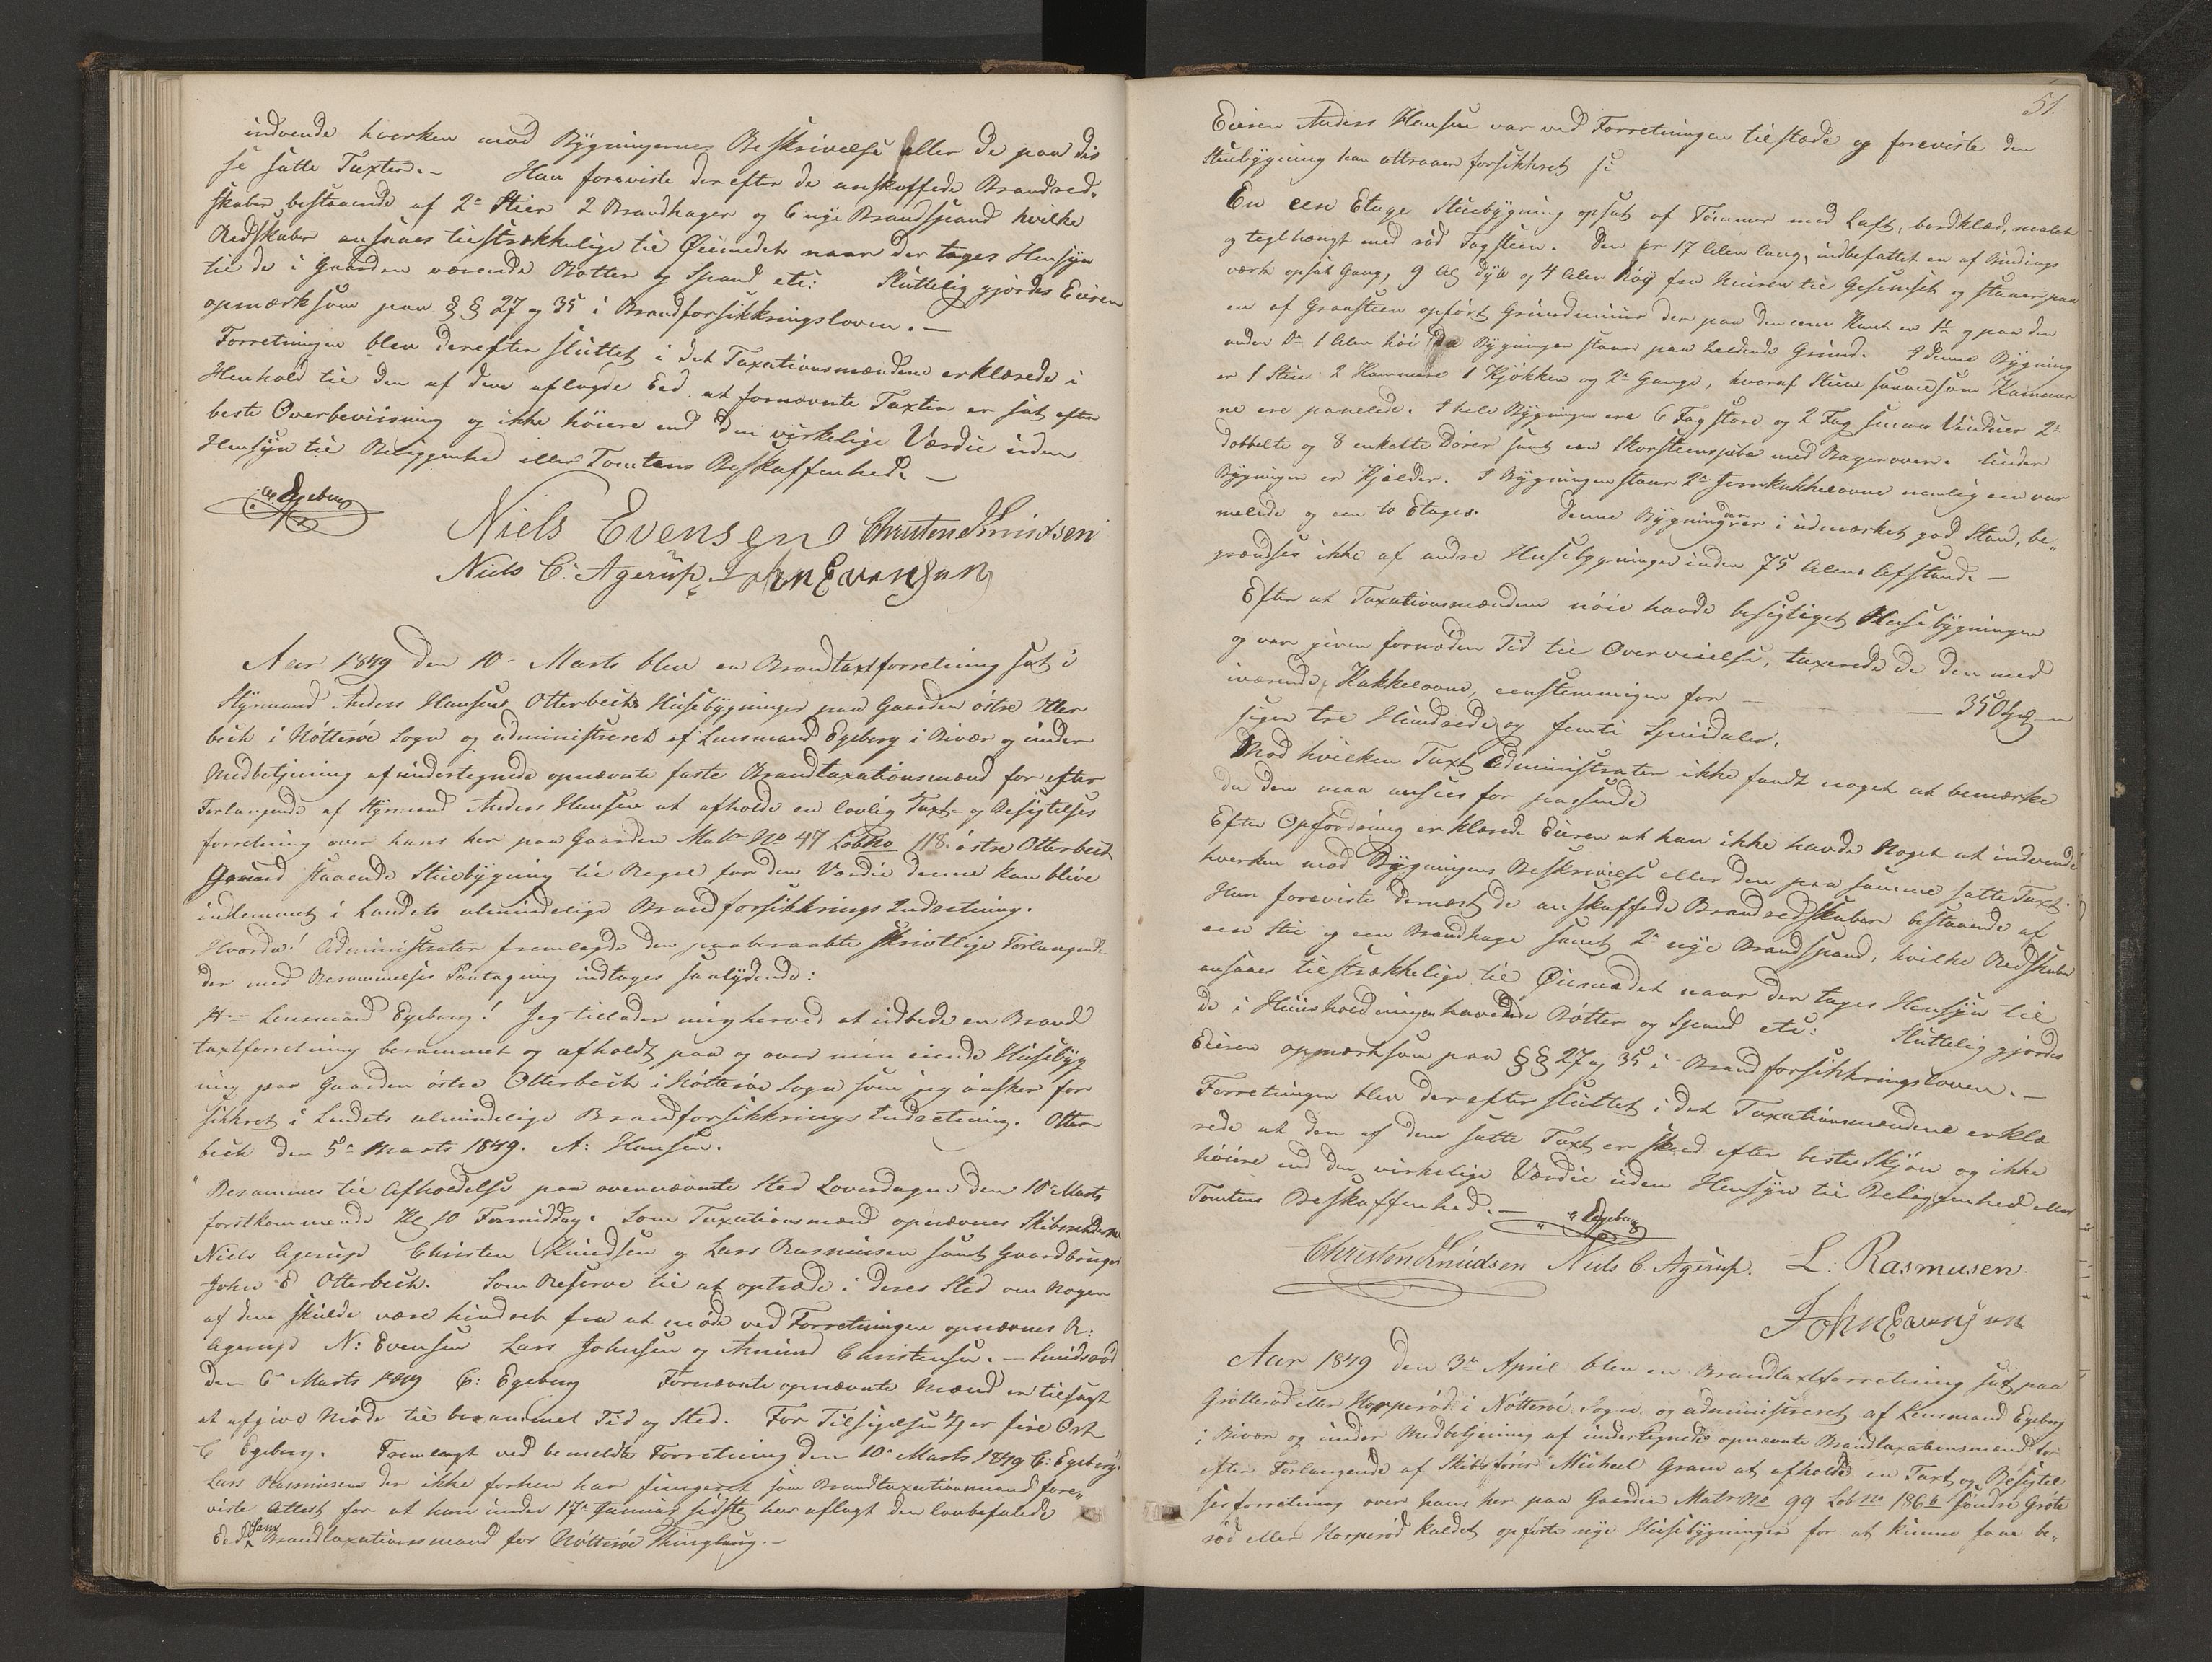 indvende hverken mod Bygningernes Beskrivelse eller de paa dis
se satte Taxter. – Han foreviste derefter de anskaffede Brandred-
skaber bestaaende af 2de Stier 2 Brandhager og 6 nye Brandspand hvilke
Redskaber ansaaes tilstrækkelige til Øiemedet naar der tages Hensyn
til de i Gaarden værende Bøtter og Spand etc: Sluttelig gjordes Eieren
opmærksom paa §§ 27 og 35 i Brandforsikkringsloven. –
Forretningen blev derefter sluttet i det Taxationsmændene erklærede i
Henhold til den af dem aflagde Eed at fornævnte Taxter er sat efter
beste Overbeviisning og ikke høiere end den virkelige Værdie uden
Hensyn til Beliggenhed eller Tomtens Beskaffenhed. –
C. Egeberg
Niels Evensen Christen Knudsen
Niels C. Agerup John Evensen
Aar 1849 den 10de Marts blev en Brandtaxtforretning sat i
Styrmand Anders Hansens Otterbecks Huusebygninger paa Gaarden østre Otter
bech i Nøtterøe Sogn og administreret af Lensmand Egeberg i Bivær og under
Medbetjening af undertegnede opnævnte faste Brandtaxationsmænd for efter
Forlangende af Styrmand Anders Hansen at afholde en lovlig Taxt- og Besigtelses
forretning over hans her paa Gaarden Matr No 47 Løbno 118 østre Otterbech
Grund staaende Stuebygning til Regel for den Værdie denne kan blive
indlemmet i Landets almindelige Brandforsikkrings Indretning.
Hvorda! Administrator fremlagde den paaberaabte skrivtlige Forlangende
der med Berammelses Paategning indtages saalydende:
Hr Lensmand Egeberg! Jeg tillader mig herved at udbede en Brand
taxtforretning berammet og afholdt paa og over min eiende Huusebyg
ning paa Gaarden østre Otterbech i Nøtterøe Sogn som jeg ønsker for
sikkret i Landets almindelige Brandforsikkrings Indretning. Otter
bech den 5te Marts 1849. A: Hansen.
Berammes til Afholdelse paa ovennævnte Sted Løverdagen den 10 Marts
førstkommende Kl 10 Formiddag. Som Taxationsmænd opnævnes Skibsrhederne
Niels Agerup Christen Knudsen og Lars Rasmusen samt Gaardbruger
John E Otterbech. Som Reserve til at optræde i deres Sted om Nogen
af dem skulde være hindret fra at møde ved Forretningen opnævnes R:
Agerup N: Evensen Lars Johnsen og Amund Christensen. – Smidsrød
den 6te Marts 1849 C: Egeberg Fornævnte opnævnte Mænd er tilsagt
at afgive Møde til berammet Tid og Sted. For Tilsigelsen er fire Ort
C Egeberg. Fremlagt ved bemeldte Forretning den 10de Marts 1849 C: Egeberg.
Lars Rasmusen der ikke forhen har fungeret som Brandtaxationsmand fore-
viste Attest for at han under 17de Januar sidste har aflagt den lovbefalede
Eed som Brandtaxationsmand for Nøtterøe Thinglaug. –
51.
Eieren Anders Hansen var ved Forretningen tilstæde og foreviste den
Stuebygning han attraaer forsikkret
En een Etage Stuebygning opsat af Tømmer med Laft, bordklæd, malet
og teglhængt med rød Tagsteen. Den er 17 Alen lang, indbefattet en af Bindings
værk opsat Gang, 9 Al dyb og 4 Alen høy fra Muren til Gesimset og staaer paa
en af Graasteen opført Grundmuur der paa den ene Kant er 1/2 og paa den
anden Do 1 Alen høi da Bygningen staaer paa heldende Grund. I denne Bygning
er 1 Stue 2 Kammere 1 Kjøkken og 2de Gange, hvoraf Stuen saavelsom Kammer
ne ere panelede. I hele Bygningen ere 6 Fag store og 2 Fag smaae Vinduer 2de
dobbelte og 8 enkelte Dører samt een Skorsteenspibe med Bagerovn. Under
Bygningen er Kjelder. I Bygningen staaer 2de Jernkakkelovne nemlig een
og een to Etages. Denne Bygning der er i udmærket god Stand, be-
grændses ikke af andre Husebygninger inden 75 Alens Afstand. –
Efter at Taxationsmændene nøie havde besigtiget Husebygningen
og var given fornøden Tid til Overveielse, taxerede de den med
iværende Kakkelovne, eenstemmigen for – – – 350 Spd
siger tre Hundrede og femti Speciedaler.
Mod hvilken Taxt Administrator ikke fandt noget at bemærke
da den maa ansees for passende
Efter Opfordring erklærede Eieren at han ikke havde Noget at indvende
hverken mod Bygningens Beskrivelse eller den paa samme satte Taxt.
Han foreviste dernæst de anskaffede Brandredskaber bestaaende af
een Stie og een Brandhage samt 2de nye Brandspand, hvilke Redskaber
ansaaes tilstrækkelige til Øiemedet naar der tages Hensyn til
de i Huusholdningen havende Bøtter og Spand etc: Sluttelig gjordes
Eieren opmærksom paa §§ 27 og 35 i Brandforsikkringsloven. –
Forretningen blev derefter sluttet i det Taxationsmændene erklæ
rede at den af dem satte Taxt er skeed efter beste Skjøn og ikke
høiere end den virkelige Værdie uden Hensyn til Beliggenhed eller
Tomtens Beskaffenhed. –
C Egeberg
Christen Knudsen Niels C. Agerup. L: Rasmusen.
John Evensen
Aar 1849 den 3de April blev en Brandtaxtforretning sat paa
Grøtterød eller Korperød i Nøtterøe Sogn og administreret af Lensmand Egeberg
i Bivær og under Medbetjening af undertegnede opnævnte Brandtaxationsmænd for
efter Forlangende af Skibsfører Michael Gram at afholde en Taxt og Besigtel
sesforretning over hans her paa Gaarden Matr No 99 Løb no 186b søndre Grøte
rød eller Korperød kaldet opførte nye Husebygninger for at kunne faae be-